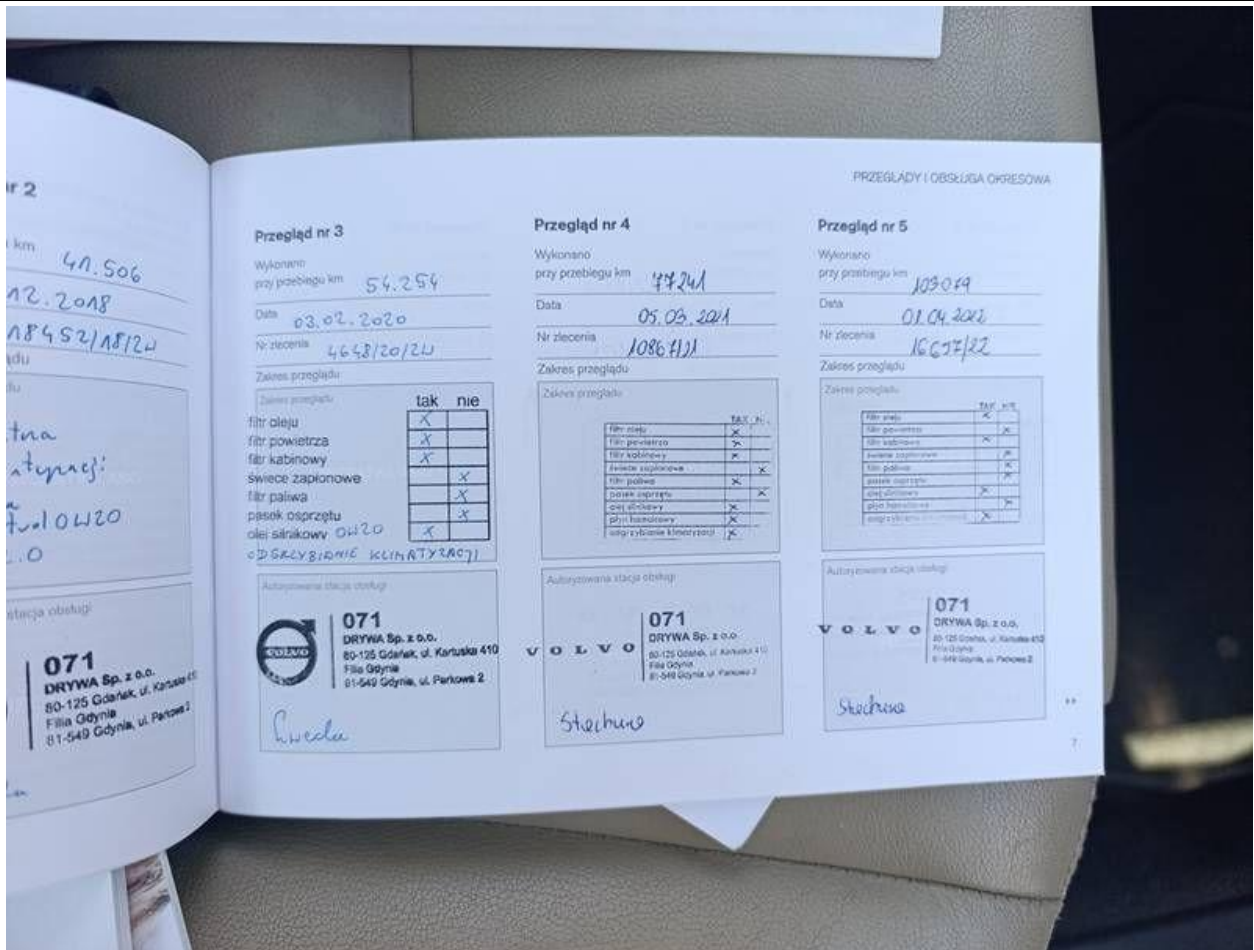 nr 2
km 41.506
12.2018
18452/18/2W
0W20
stacja obsługi
071
DRYWA Sp. z o.o.
80-125 Gdańsk, ul. Kartuska 410
Filia Gdynia
81-549 Gdynia, ul. Parkowa 2
PRZEGLĄDY I OBSŁUGA OKRESOWA
Przegląd nr 3
Wykonano
przy przebiegu km 54.254
Data 03.02.2020
Nr zlecenia 4648/20/2W
Zakres przeglądu
Zakres przeglądu
tak nie
filtr oleju X
filtr powietrza X
filtr kabinowy X
świece zapłonowe X
filtr paliwa X
pasek osprzętu X
olej silnikowy 0W20 X
ODGRZYBIANIE KLIMATYZACJI
Autoryzowana stacja obsługi
VOLVO
071
DRYWA Sp. z o.o.
80-125 Gdańsk, ul. Kartuska 410
Filia Gdynia
81-549 Gdynia, ul. Parkowa 2
Przegląd nr 4
Wykonano
przy przebiegu km 77241
Data 05.03.2021
Nr zlecenia
Zakres przeglądu
Zakres przeglądu
filtr oleju X
filtr powietrza X
filtr kabinowy X
świece zapłonowe X
filtr paliwa X
pasek osprzętu X
olej silnikowy X
płyn hamulcowy X
odgrzybianie klimatyzacji X
Autoryzowana stacja obsługi
VOLVO
071
DRYWA Sp. z o.o.
80-125 Gdańsk, ul. Kartuska 410
Filia Gdynia
81-549 Gdynia, ul. Parkowa 2
Przegląd nr 5
Wykonano
przy przebiegu km 103079
Data 01.04.2022
Nr zlecenia
Zakres przeglądu
Zakres przeglądu
TAK NIE
filtr oleju X
filtr powietrza X
filtr kabinowy X
świece zapłonowe X
filtr paliwa X
pasek osprzętu X
olej silnikowy X
płyn hamulcowy X
odgrzybianie klimatyzacji X
Autoryzowana stacja obsługi
VOLVO
071
DRYWA Sp. z o.o.
80-125 Gdańsk, ul. Kartuska 410
Filia Gdynia
81-549 Gdynia, ul. Parkowa 2
7